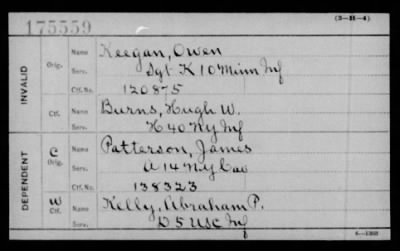 175559
(3—H—4)
INVALID
Orig.
Name Keegan, Owen
Serv. Sgt K 10 Minn Inf
Ctf. No. 120875
Ctf.
Name Burns, Hugh W.
Serv. H 40 Ny Inf
DEPENDENT
C
Orig.
Name Patterson, James
Serv. A 14 Ny Cav
Ctf. No. 138323
W
Ctf.
Name Kelly, Abraham P.
Serv. D 5 USC Inf